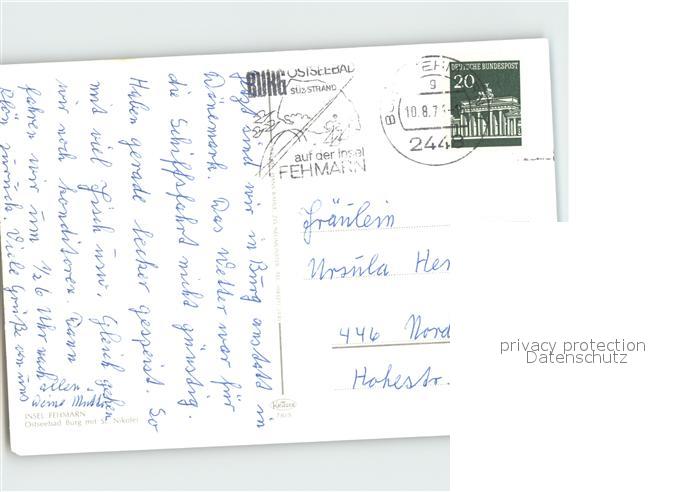 BURG
OSTSEEBAD
SÜDSTRAND
auf der Insel
FEHMARN
10.8.7
2448
DEUTSCHE BUNDESPOST
20
Jetzt sind wir in Burg anstatt in
Dänemark. Das Wetter war für
die Schiffsfahrt nicht günstig.
Haben gerade lecker gespeist. So
mit viel Fisch usw. Gleich gehen
wir noch konditoren. Dann
fahren wir um 1/2 6 Uhr nach
zurück. Viele Grüße von uns
allen.
Deine Mutti
Fräulein
Ursula Her
446 Nord
Hohestr.
INSEL FEHMARN
Ostseebad Burg mit St. Nikolai
Krüger
privacy protection
Datenschutz